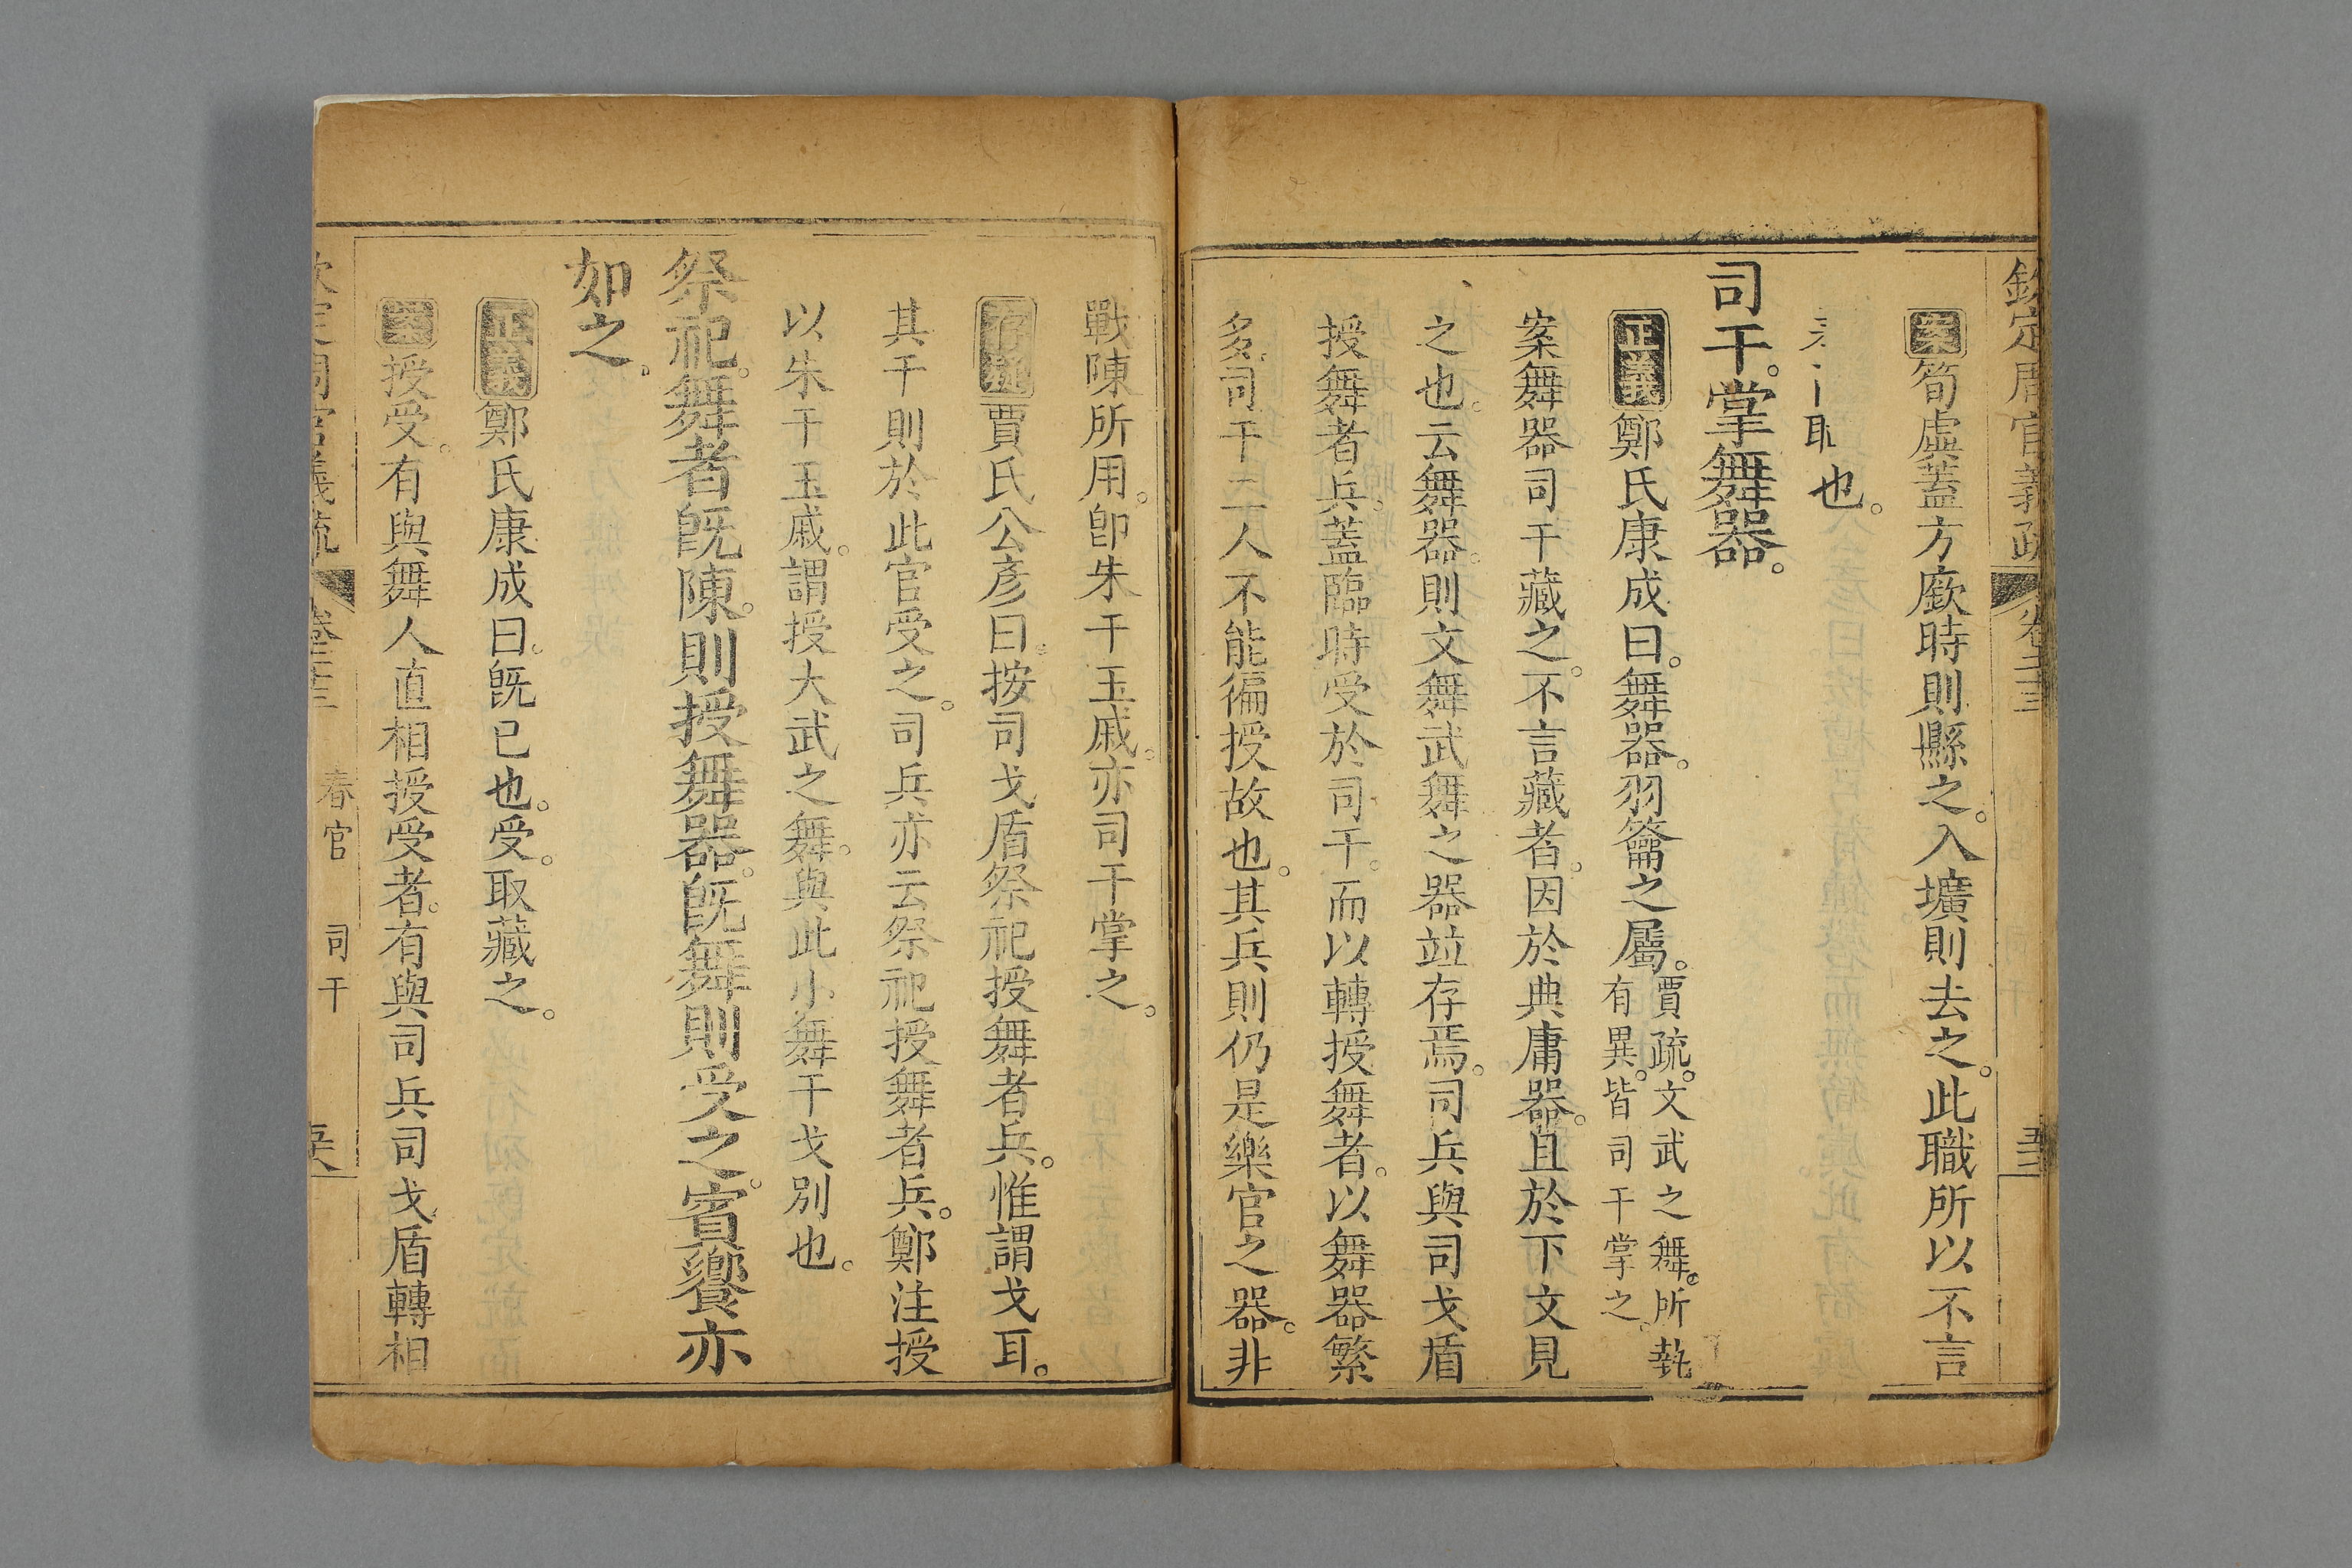 欽定周官義疏 卷二十三
案筍虡蓋方廞時則縣之。入壙則去之。此職所以不言
也。
司干。掌舞器。
正義鄭氏康成曰。舞器。羽籥之屬。賈疏。文武之舞。所執有異。皆司干掌之。
案舞器司干藏之。不言藏者。因於典庸器。且於下文見
之也。云舞器。則文舞武舞之器竝存焉。司兵與司戈盾
授舞者兵。蓋臨時受於司干。而以轉授舞者。以舞器繁
多。司干二人不能徧授故也。其兵則仍是樂官之器。非
戰陳所用。卽朱干玉戚。亦司干掌之。
存疑賈氏公彥曰。按司戈盾祭祀授舞者兵。惟謂戈耳。
其干則於此官受之。司兵亦云祭祀授舞者兵。鄭注授
以朱干玉戚。謂授大武之舞。與此小舞干戈別也。
祭祀。舞者旣陳。則授舞器。旣舞則受之。賓饗亦
如之。
正義鄭氏康成曰。旣已也。受。取藏之。
案授受。有與舞人直相授受者。有與司兵司戈盾轉相
欽定周官義疏 卷二十三 春官 司干